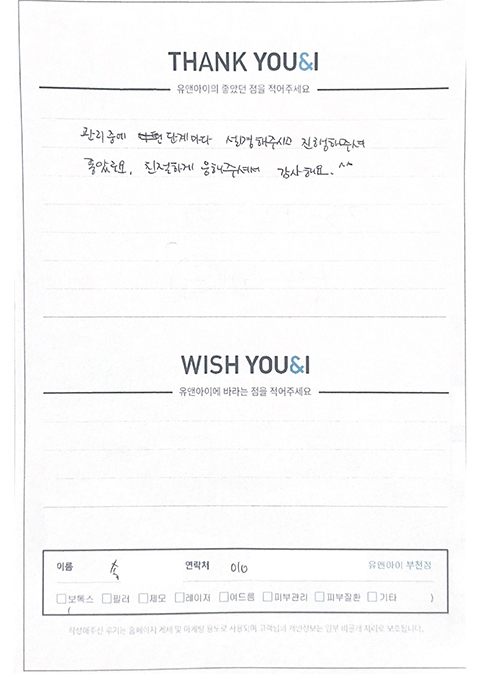 THANK YOU&I
유앤아이의 좋았던 점을 적어주세요
관리중에 단계마다 설명해주시고 진행해주셔
좋았어요. 친절하게 응해주셔서 감사해요. ^^
WISH YOU&I
유앤아이에 바라는 점을 적어주세요
이름 연락처 010 유앤아이 부천점
□보톡스 □필러 □제모 □레이저 □여드름 □피부관리 □피부질환 □기타 )
(
작성해주신 후기는 홈페이지 게재 및 마케팅 용도로 사용되며 고객님의 개인정보는 일부 비공개 처리로 보호됩니다.